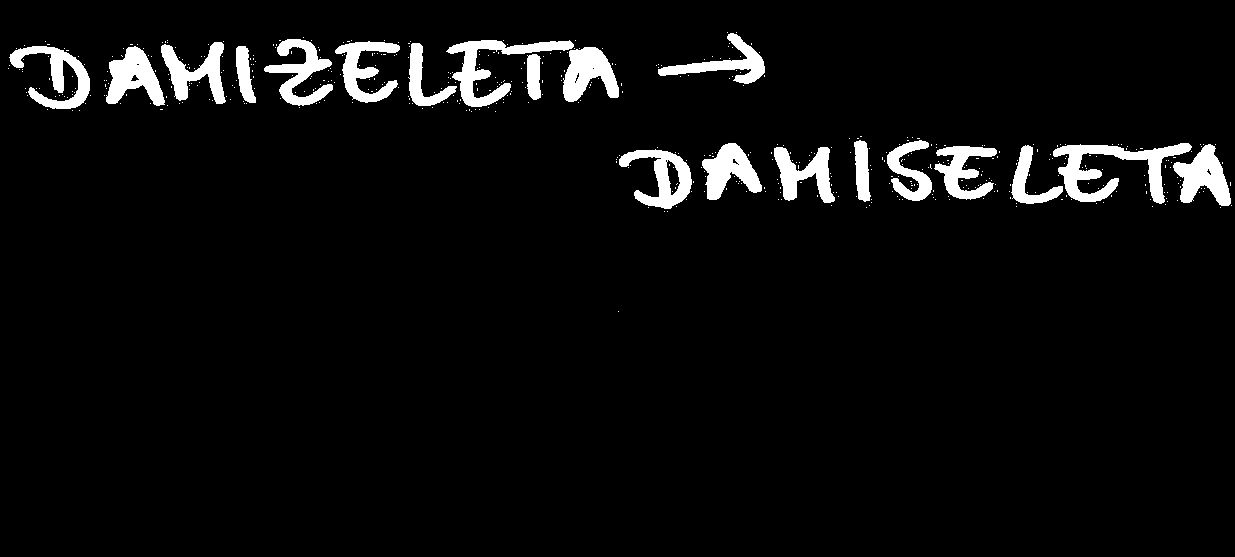 DAMIZELETA →
DAMISELETA